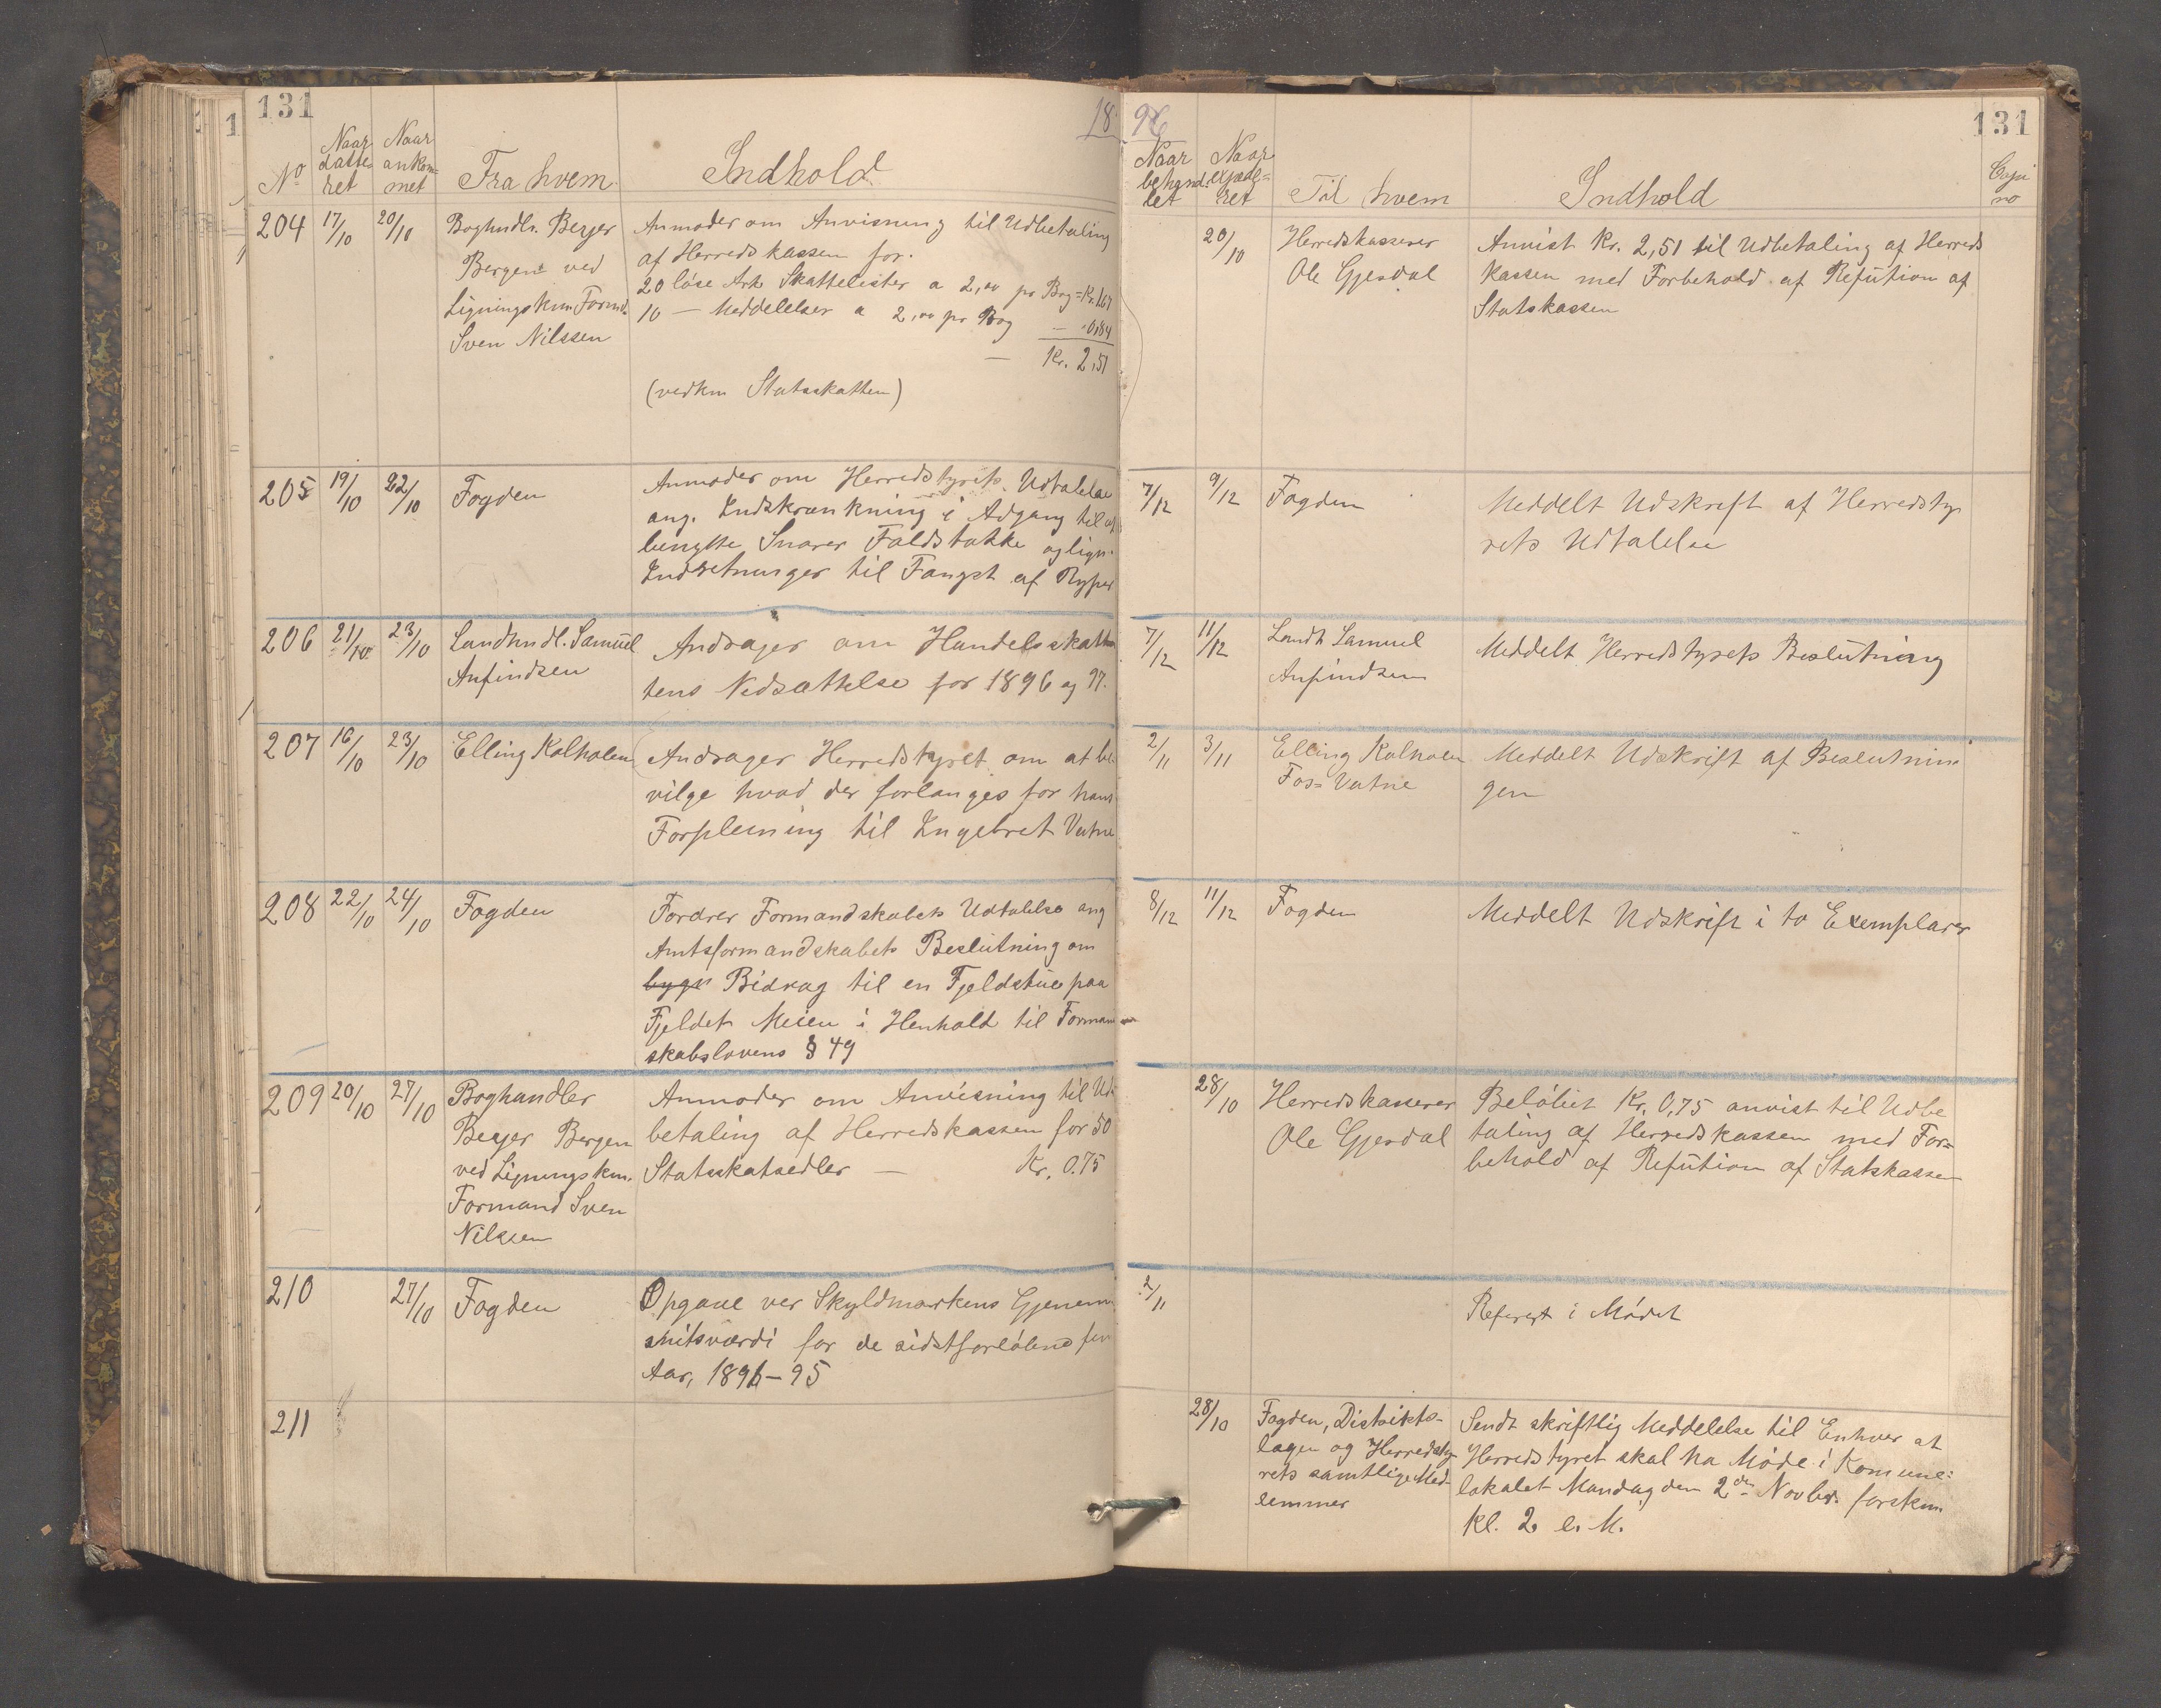 131
18
No
Naar
datte-
ret
Naar
ankom-
met
Fra hvem
Indhold
204
17/10
20/10
Boghndlr. Beyer
Bergen ved
Ligningskm. Formd.
Sven Nilssen
Anmoder om Anvisning til Udbetaling
af Herredskassen for.
20 löse Ark Skattelister a 2,00 pr Bog = Kr. 1,67
10 — Meddelelser a 2,00 pr Bog — 0,84
— Kr. 2,51
(vedkm Statsskatten)
205
19/10
22/10
Fogden
Anmoder om Herredstyrets Udtalelse
ang. Indskrænkning i Adgang til at
benytte Snarer Faldstokke og lign.
Indretninger til Fangst af Ryper
206
21/10
23/10
Landhndl. Samuel
Anfindsen
Andrager om Handelsskat
tens Nedsættelse for 1896 og 97.
207
16/10
23/10
Elling Kolholen
Andrager Herredstyret om at be-
vilge hvad der forlanges for hans
Forpleining til Engebret Vatne
208
22/10
24/10
Fogden
Fordrer Formandskabets Udtalelse ang
Amtsformandskabets Beslutning om
bygs Bidrag til en Fjeldstue paa
Fjeldet Meien i Henhold til Forman-
skabslovens § 49
209
20/10
27/10
Boghandler
Beyer Bergen
ved Ligningskm.
Formand Sven
Nilssen
Anmoder om Anvisning til Ud-
betaling af Herredskassen for 50
Statsskatsedler — Kr. 0.75
210
27/10
Fogden
Opgave ver Skyldmarkens Gjennem
snitsværdi for de sidstforløbne fem
Aar, 1891-95
211
96
131
Naar
behand-
let
Naar
expede-
ret
Til hvem
Indhold
Copi
no
20/10
Herredskasserer
Ole Gjesdal
Anvist Kr. 2,51 til Udbetaling af Herreds
kassen med Forbehold af Refution af
Statskassen
7/12
9/12
Fogden
Meddelt Udskrift af Herredsty
rets Udtalelse
7/12
11/12
Landh Samuel
Anfindsen
Meddelt Herredstyrets Beslutning
2/11
3/11
Elling Kolholen
Fos=Vatne
Meddelt Udskrift af Beslutnin
gen
8/12
11/12
Fogden
Meddelt Udskrift i to Exemplarer
28/10
Herredskasserer
Ole Gjesdal
Beløbet Kr. 0,75 anvist til Udbe
taling af Herredskassen med For=
behold af Refution af Statskassen
2/11
Referert i Mødet
28/10
Fogden, Distrikts-
lægen og Herredsty
rets samtlige Med-
lemmer
Sendt skriftlig Meddelelse til Enhver at
Herredstyret skal ha Møde i Komune:
lokalet Mandag den 2den Novbr. førstkm.
Kl. 2 e. M.